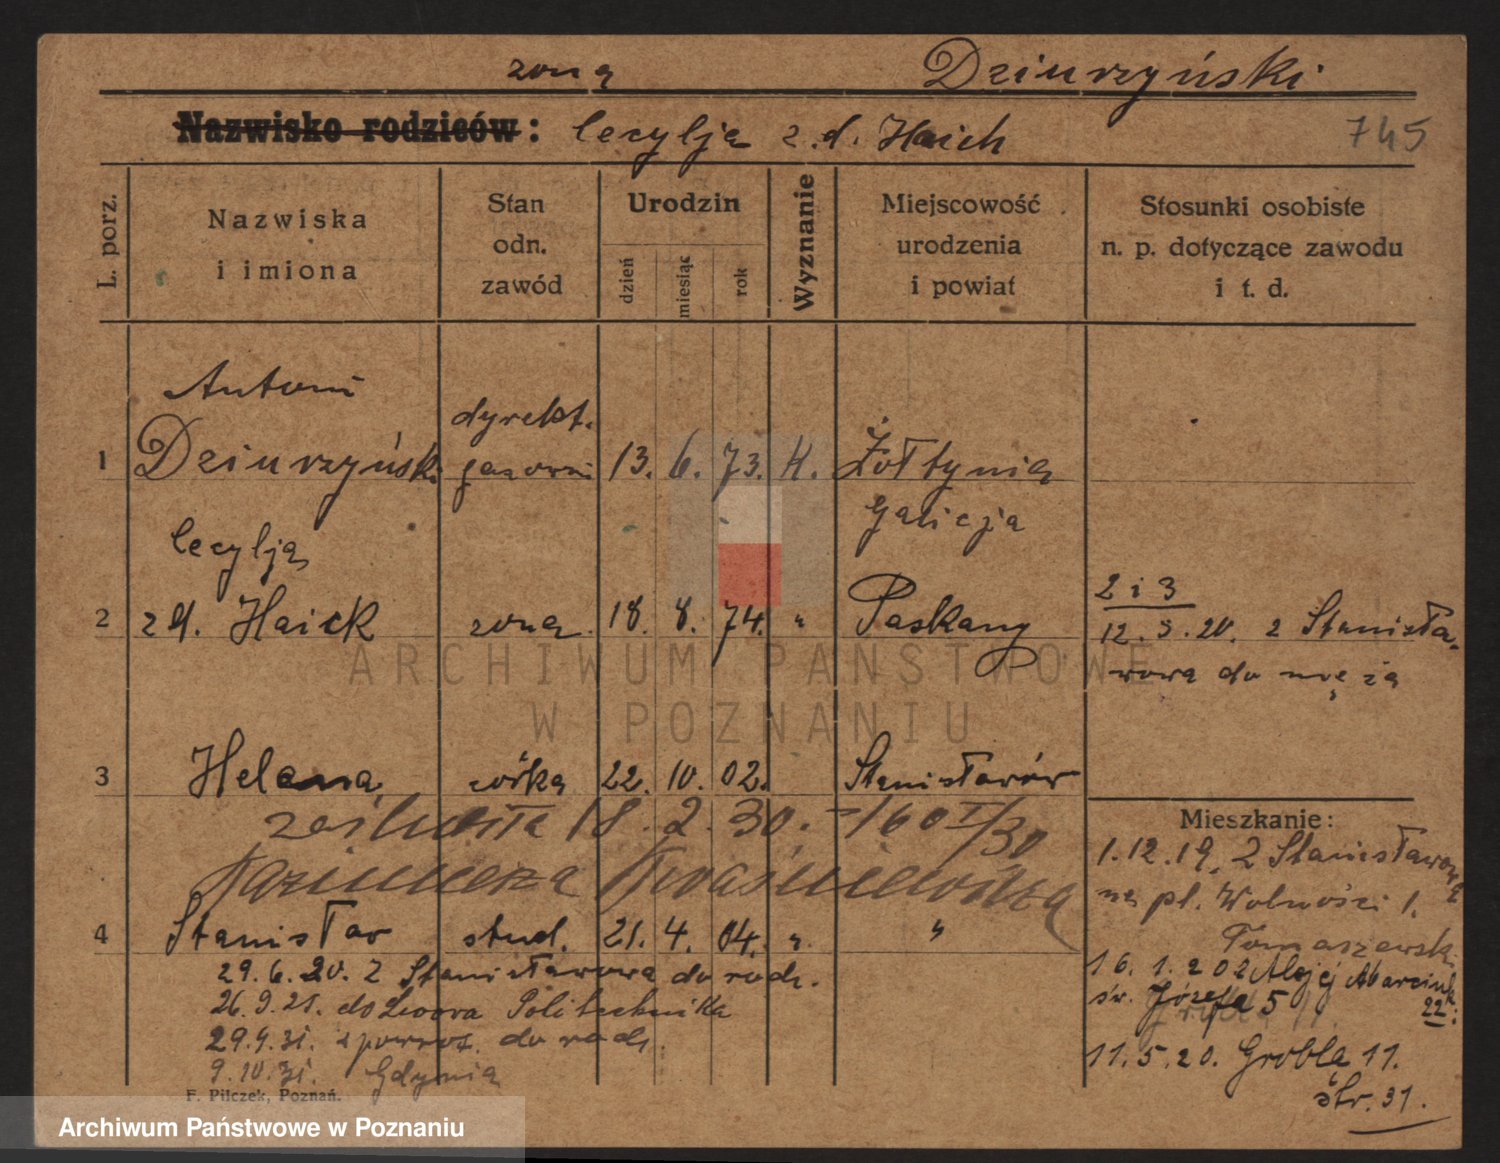 żona Dziurzyński
Nazwisko rodziców: Cecylja z d. Haich
745
L. porz.
Nazwiska i imiona
Stan odn. zawód
Urodzin
dzień
miesiąc
rok
Wyznanie
Miejscowość urodzenia i powiat
Stosunki osobiste n. p. dotyczące zawodu i t. d.
Antoni
dyrekt.
1 Dziurzyński gazowni 13. 6. 73. K. Żołtynia
Galicja
Cecylja
2 z d. Haick żona 18. 8. 74. " Paskany
2 i 3
12. 3. 20. z Stanisła-
wowa do męża
3 Helena córka 22. 10. 02. Stanisławów
zaślubiła 18. 2. 30. - 160 I/30
Kazimierza Kwaśniewskiego
4 Stanisław stud. 21. 4. 04. " "
29. 6. 20. z Stanisławowa do rodz.
26. 9. 21. do Lwowa Politechnika
29. 9. 31. z powrot. do rodz.
9. 10. 31. Gdynia
Mieszkanie:
1. 12. 19. z Stanisławowa
na pl. Wolności 1.
Tomaszewski
16. 1. 20 z Aleje Marcink. 22.
św. Józefa 5
11. 5. 20. Grobla 11.
str. 31.
F. Pilczek, Poznań.
ARCHIWUM PAŃSTWOWE
W POZNANIU
Archiwum Państwowe w Poznaniu